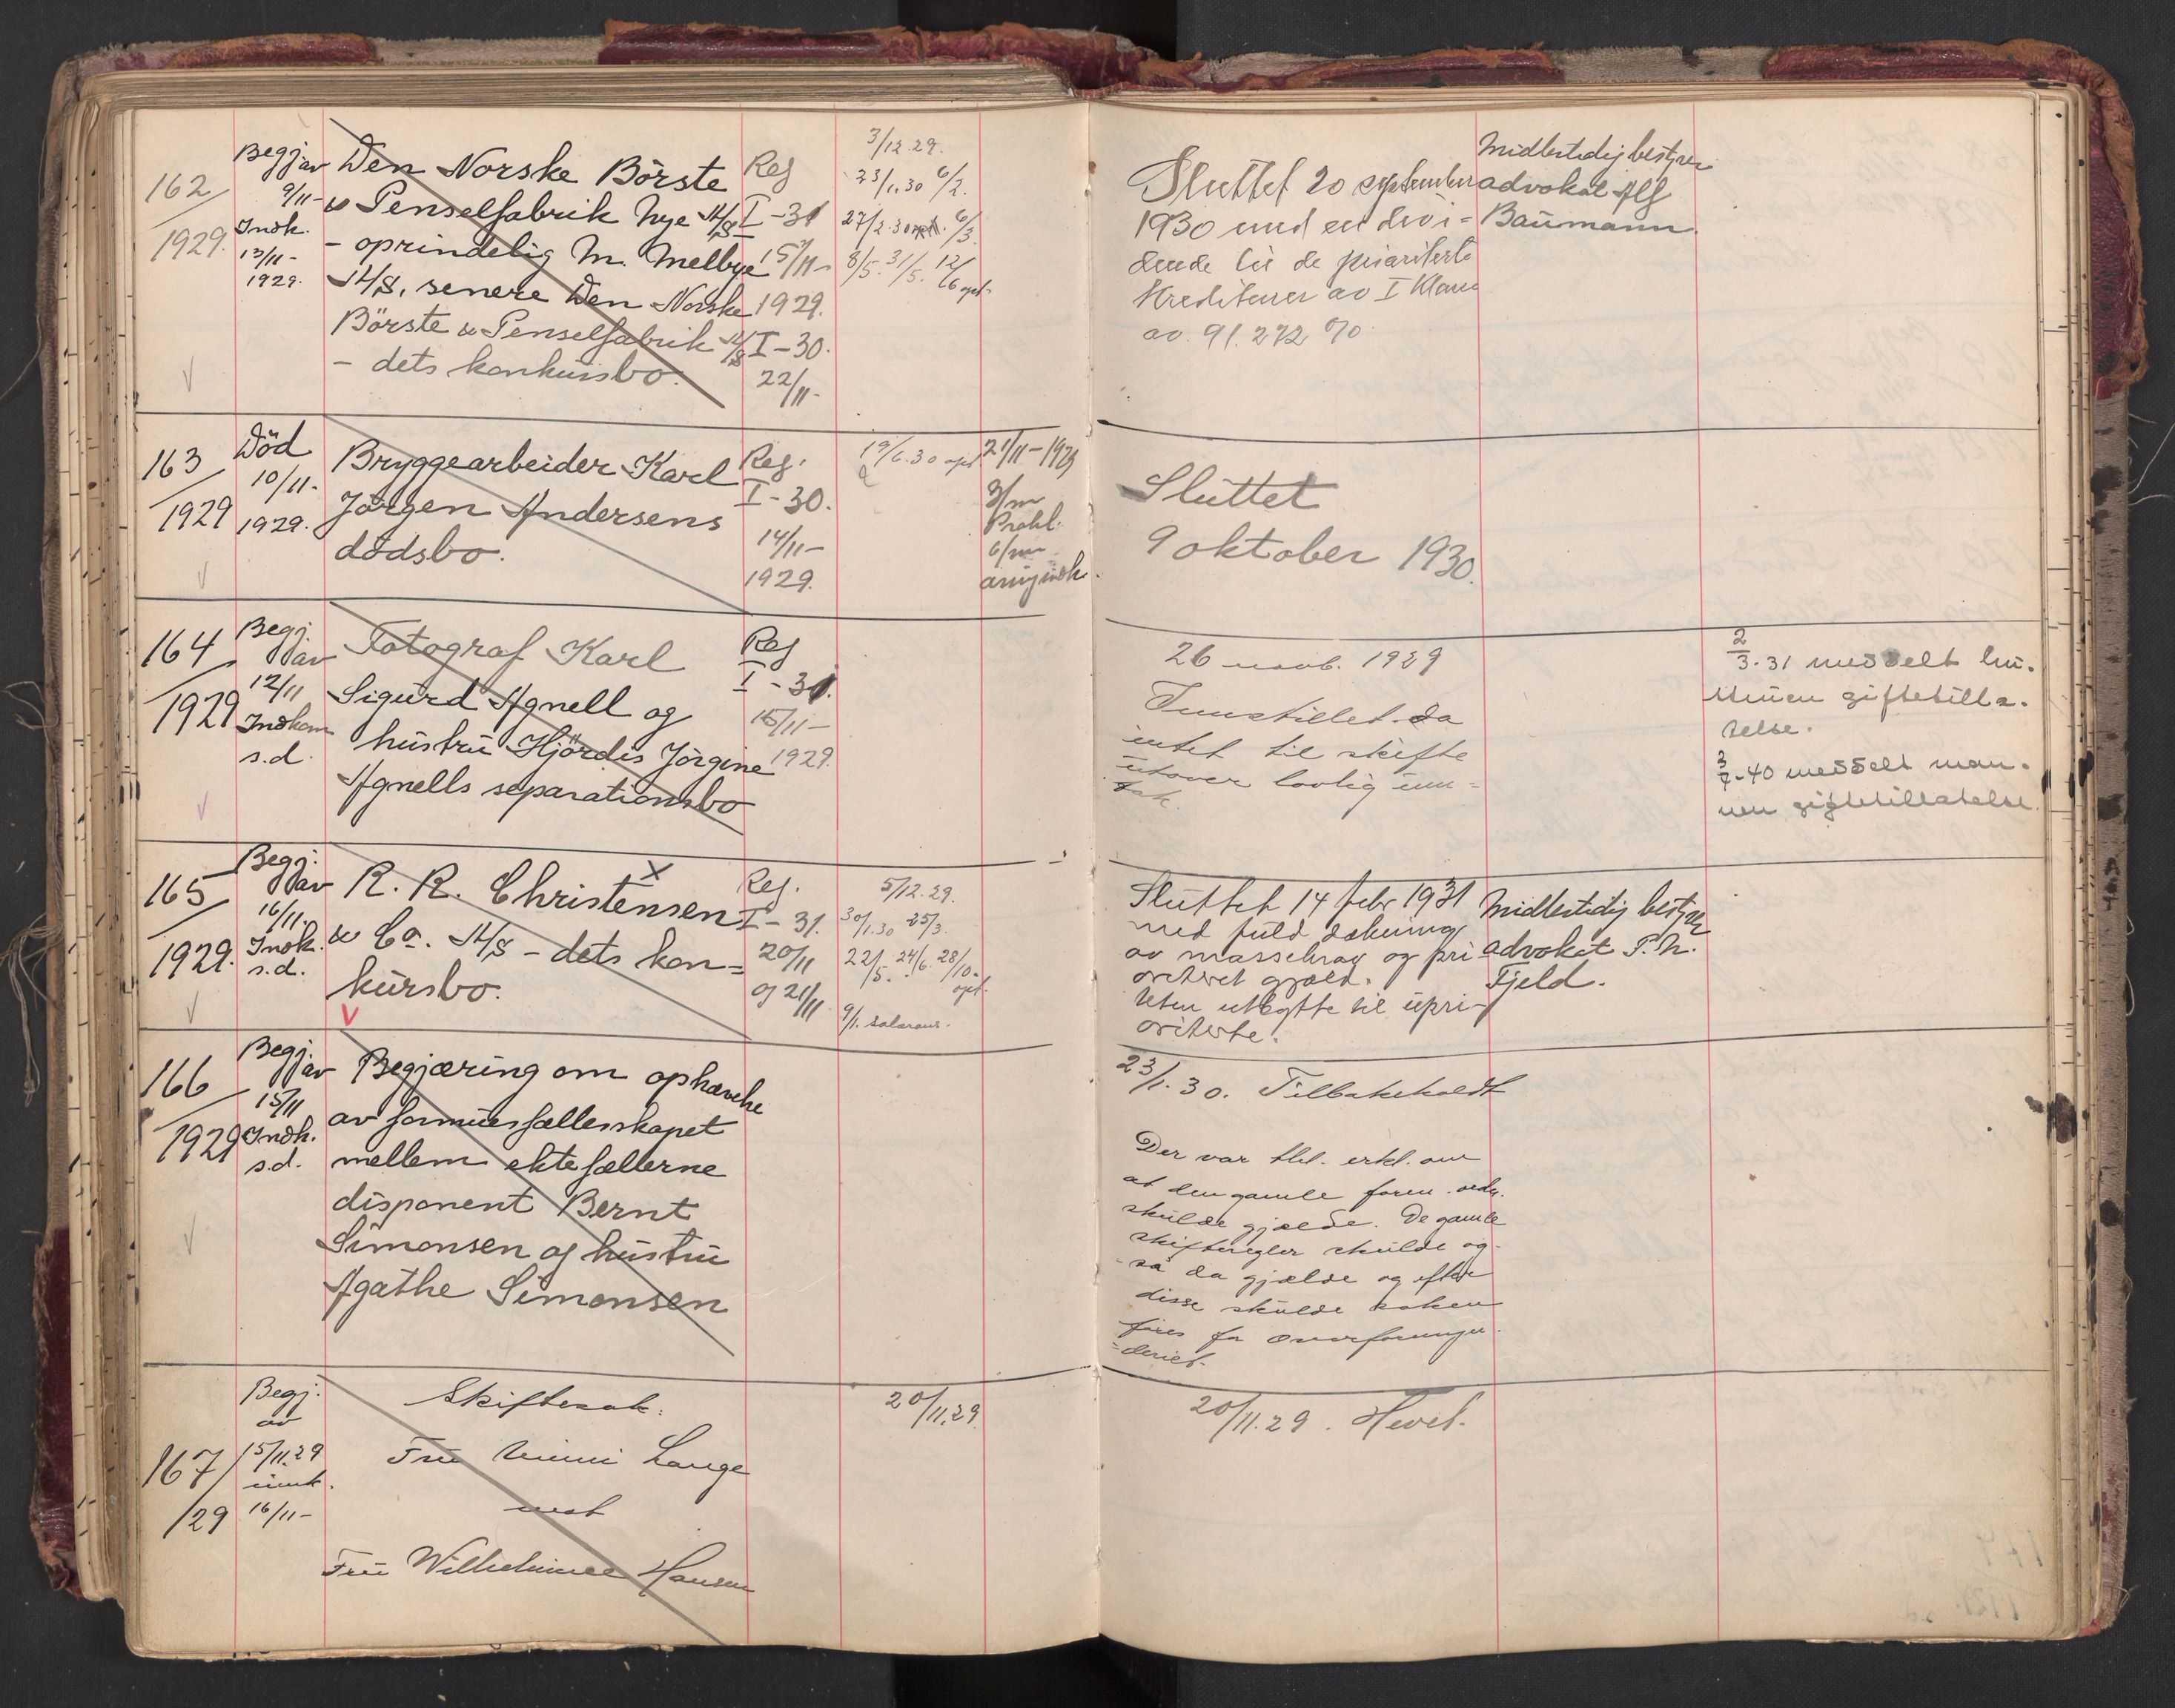 162
1929.
Begj av
9/11-
Indk.
13/11-
1929.
Den Norske Börste
& Penselfabrik Nye A/S
- oprindelig M. Melbye
A/S, senere Den Norske
Börste & Penselfabrik A/S
- dets konkursbo.
Reg
I-31
15/11-
1929.
I-30.
22/11-
3/12.29.
23/1.30 6/2.
27/2.30 6/3.
8/5. 31/5. 12/6 opt.
Sluttet 20 september
1930 med en divi-
dende til de prioriterte
Kreditorer av I Klasse
av 91.272 %
Midlertidig bestyrer
advokat Alf
Baumann.
163
1929
Död
10/11-
1929.
Bryggearbeider Karl
Jörgen Andersens
dödsbo.
Reg.
I-30.
14/11-
1929.
19/6.30 opt
21/11-1929
3/m
Prokl.
6/m
Sluttet
9 oktober 1930.
164
1929
Begj.
av
12/11
Indkom
s.d.
Fotograf Karl
Sigurd Agnell og
hustru Hjördis Jörgine
Agnells separationsbo
Reg
I-31.
15/11-
1929.
26 novb. 1929
Innstillet da
intet til skifte
utover lovlig unn-
tak.
2/3.31 meddelt hu-
struen giftetilla-
telse.
3/7-40 meddelt man-
nen giftetillatelse.
165
1929.
Begj.
av
16/11.
Indk.
s.d.
R. R. Christensen
& Co. A/S - dets kon=
kursbo.
Reg.
I-31.
20/11
og 21/11
5/12.29.
30/1.30 25/3.
22/5. 24/6. 28/10.
opt.
9/1. salærans.
Sluttet 14 febr 1931
med fuld dækning
av massekrav og pri
oritert gjæld.
Uten utbytte til upri-
oriterte.
Midlertidig bestyrer
advokat P. N.
Fjeld.
166
1929
Begj.
av
15/11
Indk.
s.d.
Begjæring om ophævelse
av formuesfællesskapet
mellem ektefællerne
disponent Bernt
Simonsen og hustru
Agathe Simonsen
23/1.30. Tilbakeholdt
Der var tlst. erkl. om
at den gamle form. ordn.
skulde gjælde. De gamle
skifteregler skulde og-
så da gjælde og efter
disse skulde saken
føres for overformyn-
deriet.
167
/29
Begj.
av
15/11.29
innk.
16/11-
Skiftesak.
Fru Lange
mot
Fru Wilhelmine Hansen
20/11.29
20/11.29. Hevet.